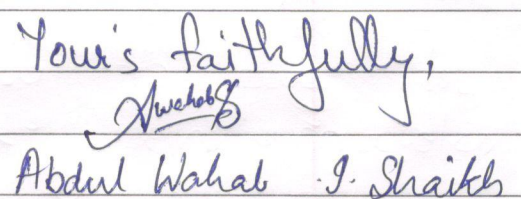 Your's faithfully,
Awahab
Abdul Wahab .I. Shaikh